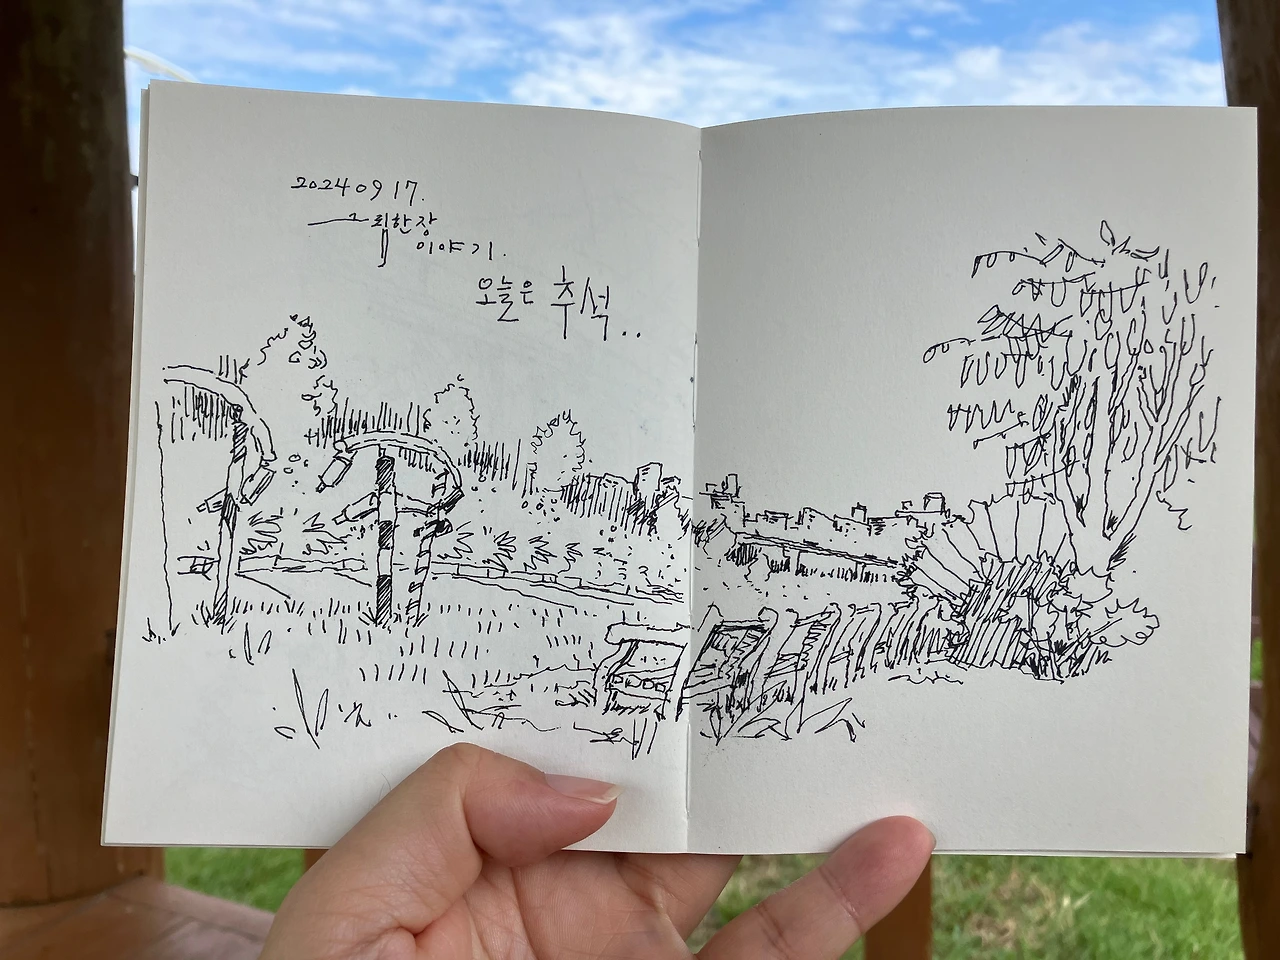 20240917.
그림한장
이야기.
오늘은 추석..